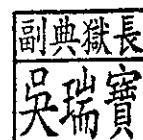 副典獄長
吳瑞寶